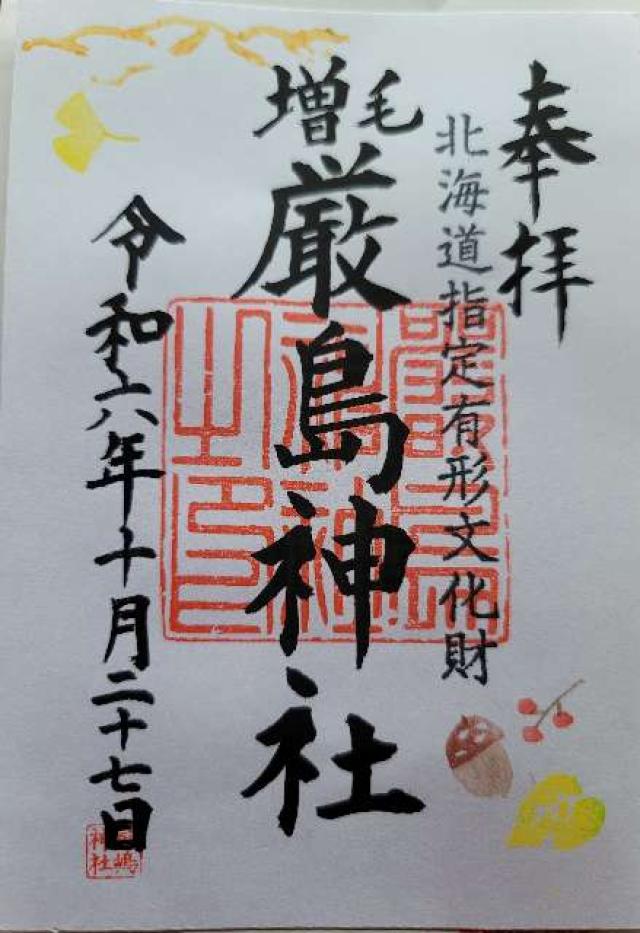 奉拝
北海道指定有形文化財
増毛
厳島神社
令和六年十月二十七日